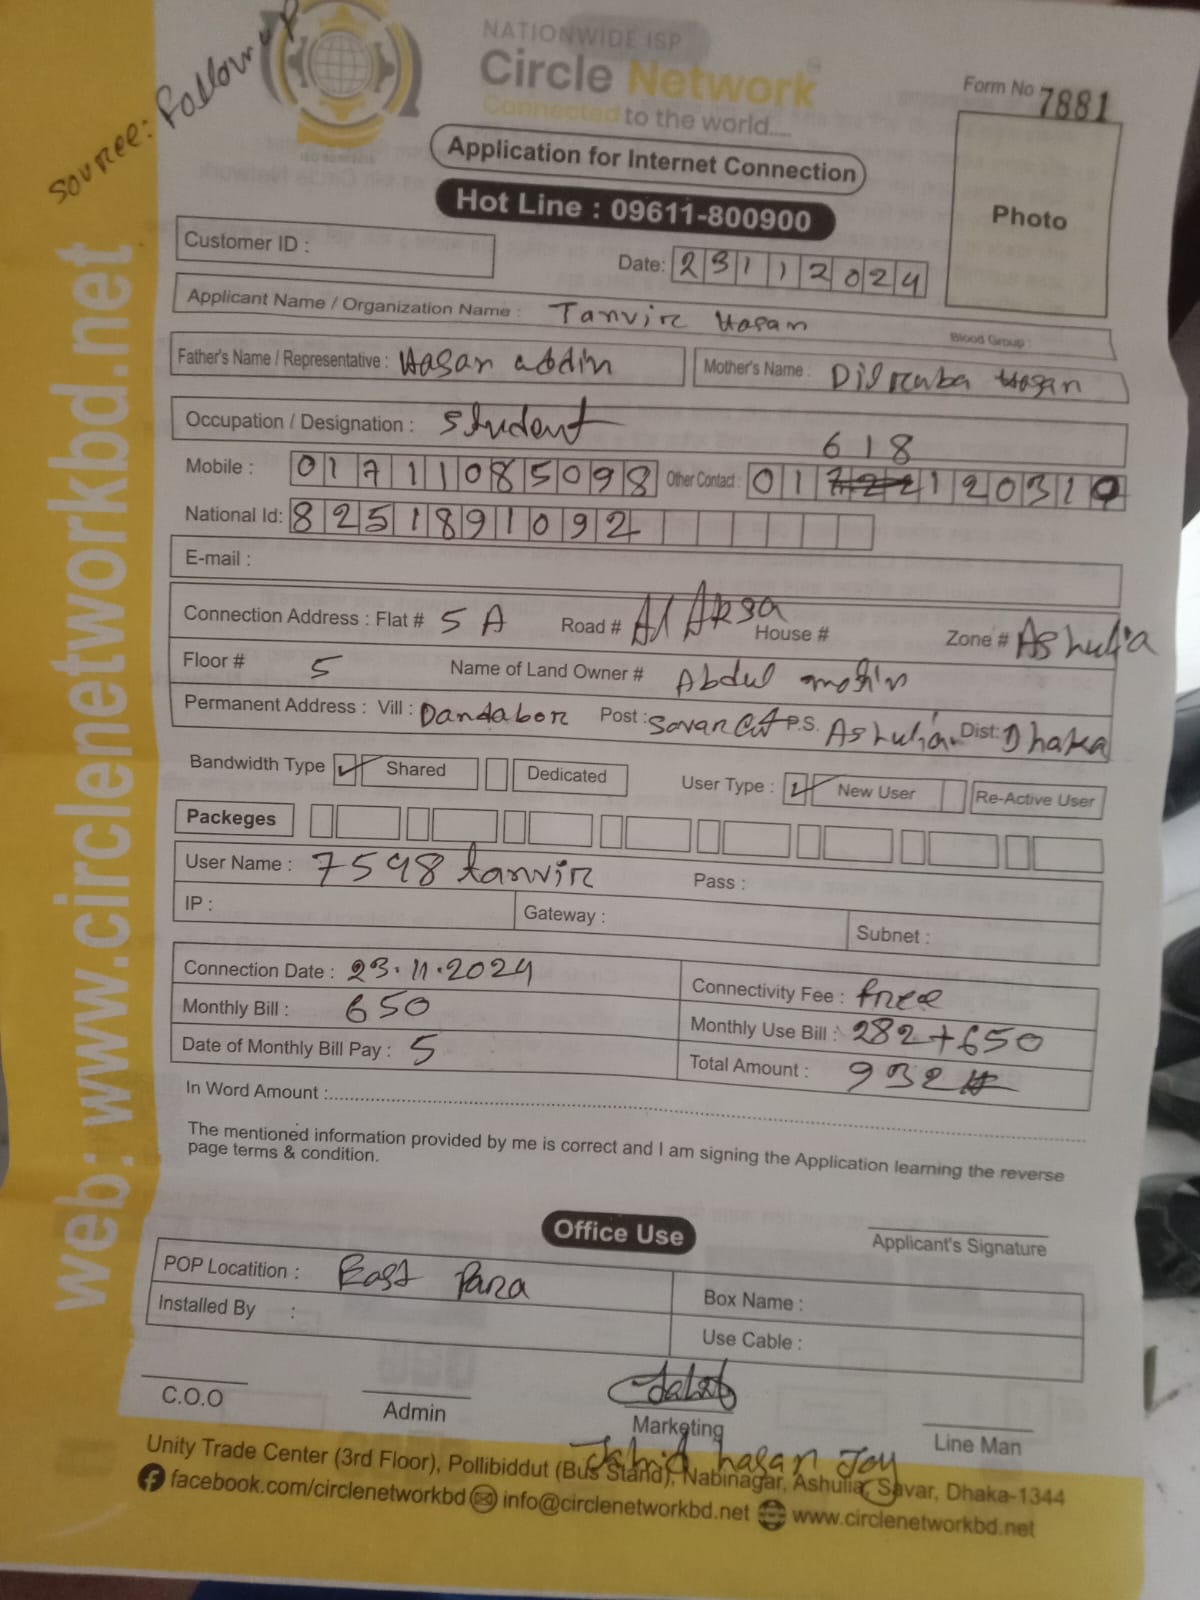 source: Follow up
NATIONWIDE ISP
Circle Network
Connected to the world....
Form No 7881
Application for Internet Connection
Hot Line : 09611-800900
Photo
Customer ID :
Date: 23112024
Applicant Name / Organization Name : Tanvir Hasan
Blood Group :
Father's Name / Representative : Hasan uddin Mother's Name : Dilruba Hasan
Occupation / Designation : Student
618
Mobile : 01711085098 Other Contact : 01 120319
National Id: 8251891092
E-mail :
Connection Address : Flat # 5 A Road # Al Aksa House # Zone # Ashulia
Floor # 5 Name of Land Owner # Abdul mohin
Permanent Address : Vill : Dandabor Post : Savar Cat P.S. Ashulia Dist: Dhaka
Bandwidth Type ✓ Shared Dedicated User Type : ✓ New User Re-Active User
Packeges
User Name : 7598 tanvir Pass :
IP : Gateway : Subnet :
Connection Date : 23.11.2024 Connectivity Fee : free
Monthly Bill : 650 Monthly Use Bill : 282+650
Date of Monthly Bill Pay : 5 Total Amount : 932
In Word Amount :
The mentioned information provided by me is correct and I am signing the Application learning the reverse
page terms & condition.
Office Use
Applicant's Signature
POP Locatition : East Para Box Name :
Installed By : Use Cable :
C.O.O Admin Marketing Line Man
Jahid hasan Joy
Unity Trade Center (3rd Floor), Pollibiddut (Bus Stand), Nabinagar, Ashulia, Savar, Dhaka-1344
facebook.com/circlenetworkbd info@circlenetworkbd.net www.circlenetworkbd.net
web: www.circlenetworkbd.net